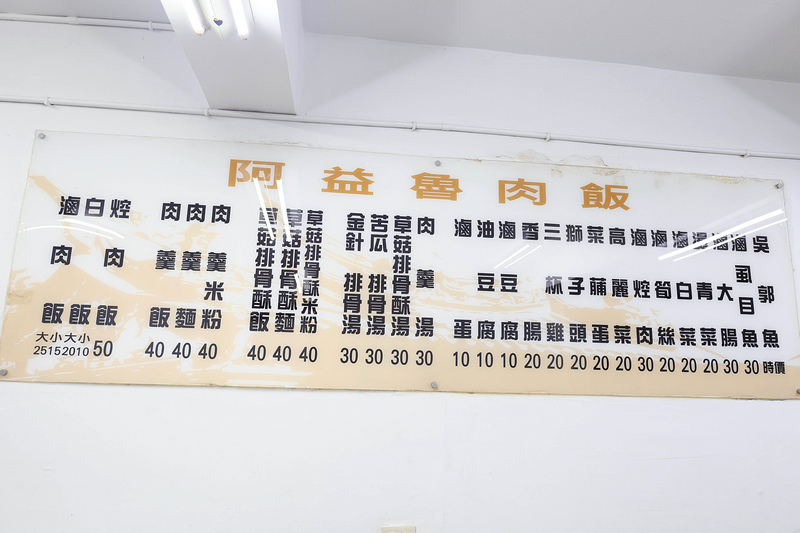 阿益魯肉飯
滷肉飯 大小 2515
白飯 大小 2010
焢肉飯 50
肉羹飯 40
肉羹麵 40
肉羹米粉 40
草菇排骨酥飯 40
草菇排骨酥麵 40
草菇排骨酥米粉 40
金針排骨湯 30
苦瓜排骨湯 30
草菇排骨酥湯 30
肉羹湯 30
滷蛋 10
油豆腐 10
滷豆腐 10
香腸 20
三杯雞 20
獅子頭 20
菜蒲蛋 20
高麗菜 20
滷焢肉 30
滷筍絲 20
滷白菜 20
青菜 20
滷大腸 30
滷虱目魚 30
吳郭魚 時價